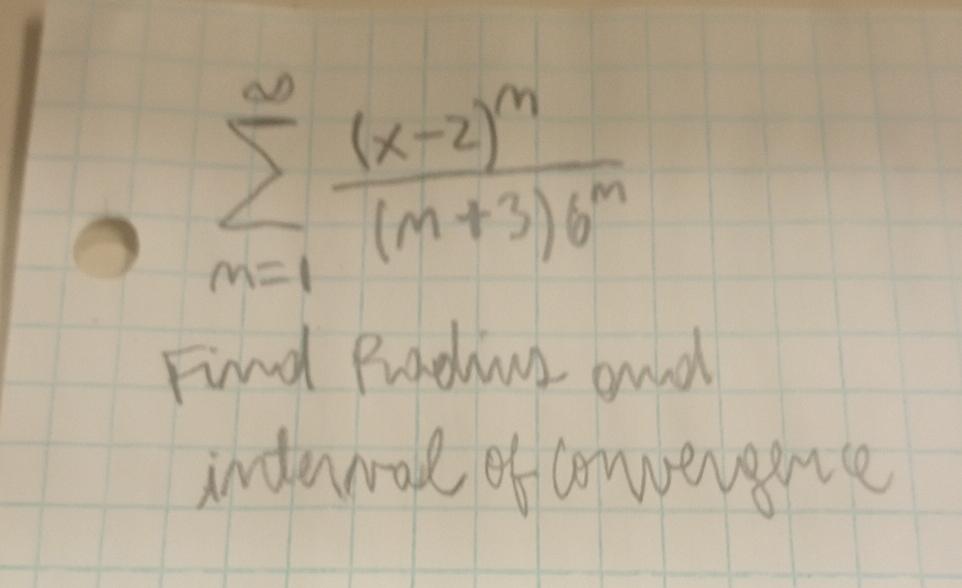 \sum_{n=1}^{\infty} \frac{(x-2)^n}{(n+3)6^n}
Find Radius and
interval of convergence